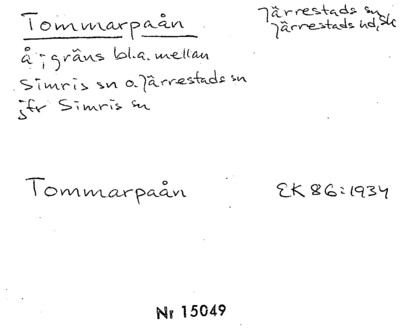 Tommarpaån
Järrestads sn
Järrestads hd, Sk
å ; gräns bl.a. mellan
Simris sn o. Järrestads sn
jfr Simris sn
Tommarpaån
EK 86:1934
Nr 15049